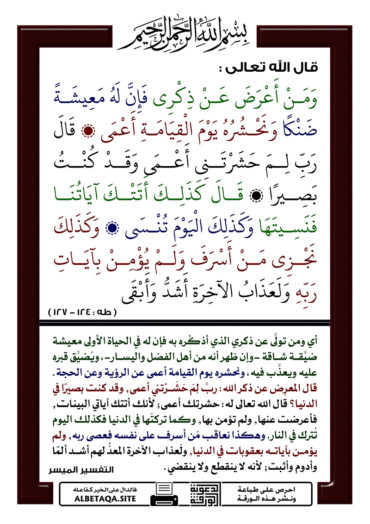 بِسْمِ اللَّهِ الرَّحْمَنِ الرَّحِيمِ
قال الله تعالى :
وَمَنْ أَعْرَضَ عَنْ ذِكْرِي فَإِنَّ لَهُ مَعِيشَةً
ضَنْكًا وَنَحْشُرُهُ يَوْمَ الْقِيَامَةِ أَعْمَى ۞ قَالَ
رَبِّ لِمَ حَشَرْتَنِي أَعْمَى وَقَدْ كُنْتُ
بَصِيرًا ۞ قَالَ كَذَلِكَ أَتَتْكَ آيَاتُنَا
فَنَسِيتَهَا وَكَذَلِكَ الْيَوْمَ تُنْسَى ۞ وَكَذَلِكَ
نَجْزِي مَنْ أَسْرَفَ وَلَمْ يُؤْمِنْ بِآيَاتِ
رَبِّهِ وَلَعَذَابُ الْآخِرَةِ أَشَدُّ وَأَبْقَى
( طه : ١٢٤ - ١٢٧ )
أي ومن تولَّى عن ذكري الذي أذكِّره به فإن له في الحياة الأولى معيشة
ضيِّقة شاقة -وإن ظهر أنه من أهل الفضل واليسار-، ويُضيَّق قبره
عليه ويعذَّب فيه، ونحشره يوم القيامة أعمى عن الرؤية وعن الحجة .
قال المعرِض عن ذكر الله : ربِّ لِمَ حَشَرْتني أعمى، وقد كنت بصيرًا في
الدنيا؟ قال الله تعالى له : حشرتك أعمى؛ لأنك أتتك آياتي البينات،
فأعرضت عنها، ولم تؤمن بها، وكما تركتَها في الدنيا فكذلك اليوم
تُترك في النار. وهكذا نعاقب مَن أسرف على نفسه فعصى ربه، ولم
يؤمن بآياته بعقوبات في الدنيا، ولعذاب الآخرة المعدُّ لهم أشد ألمًا
وأدوم وأثبت؛ لأنه لا ينقطع ولا ينقضي. التفسير الميسر
احرص على طباعة
ونشر هذه الورقة
الدعوية
الورقة
فالدال على الخير كفاعله
ALBETAQA.SITE